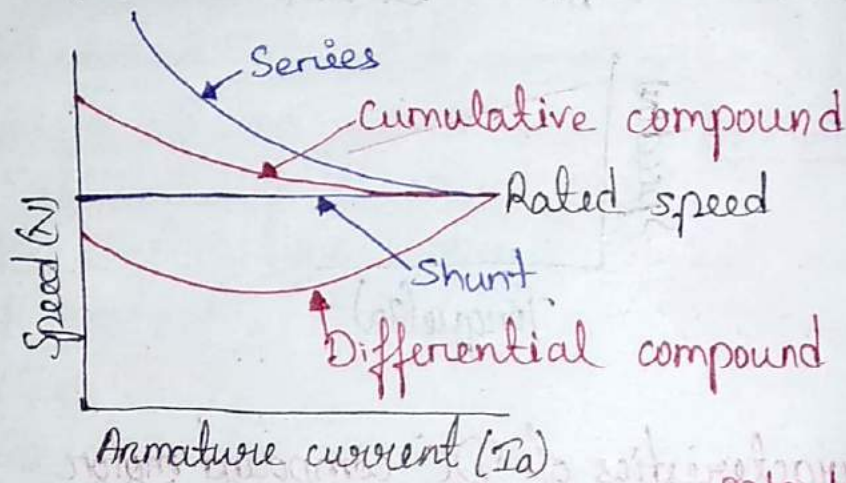 Series
Cumulative compound
Rated speed
Speed (N)
Shunt
Differential compound
Armature current (Ia)